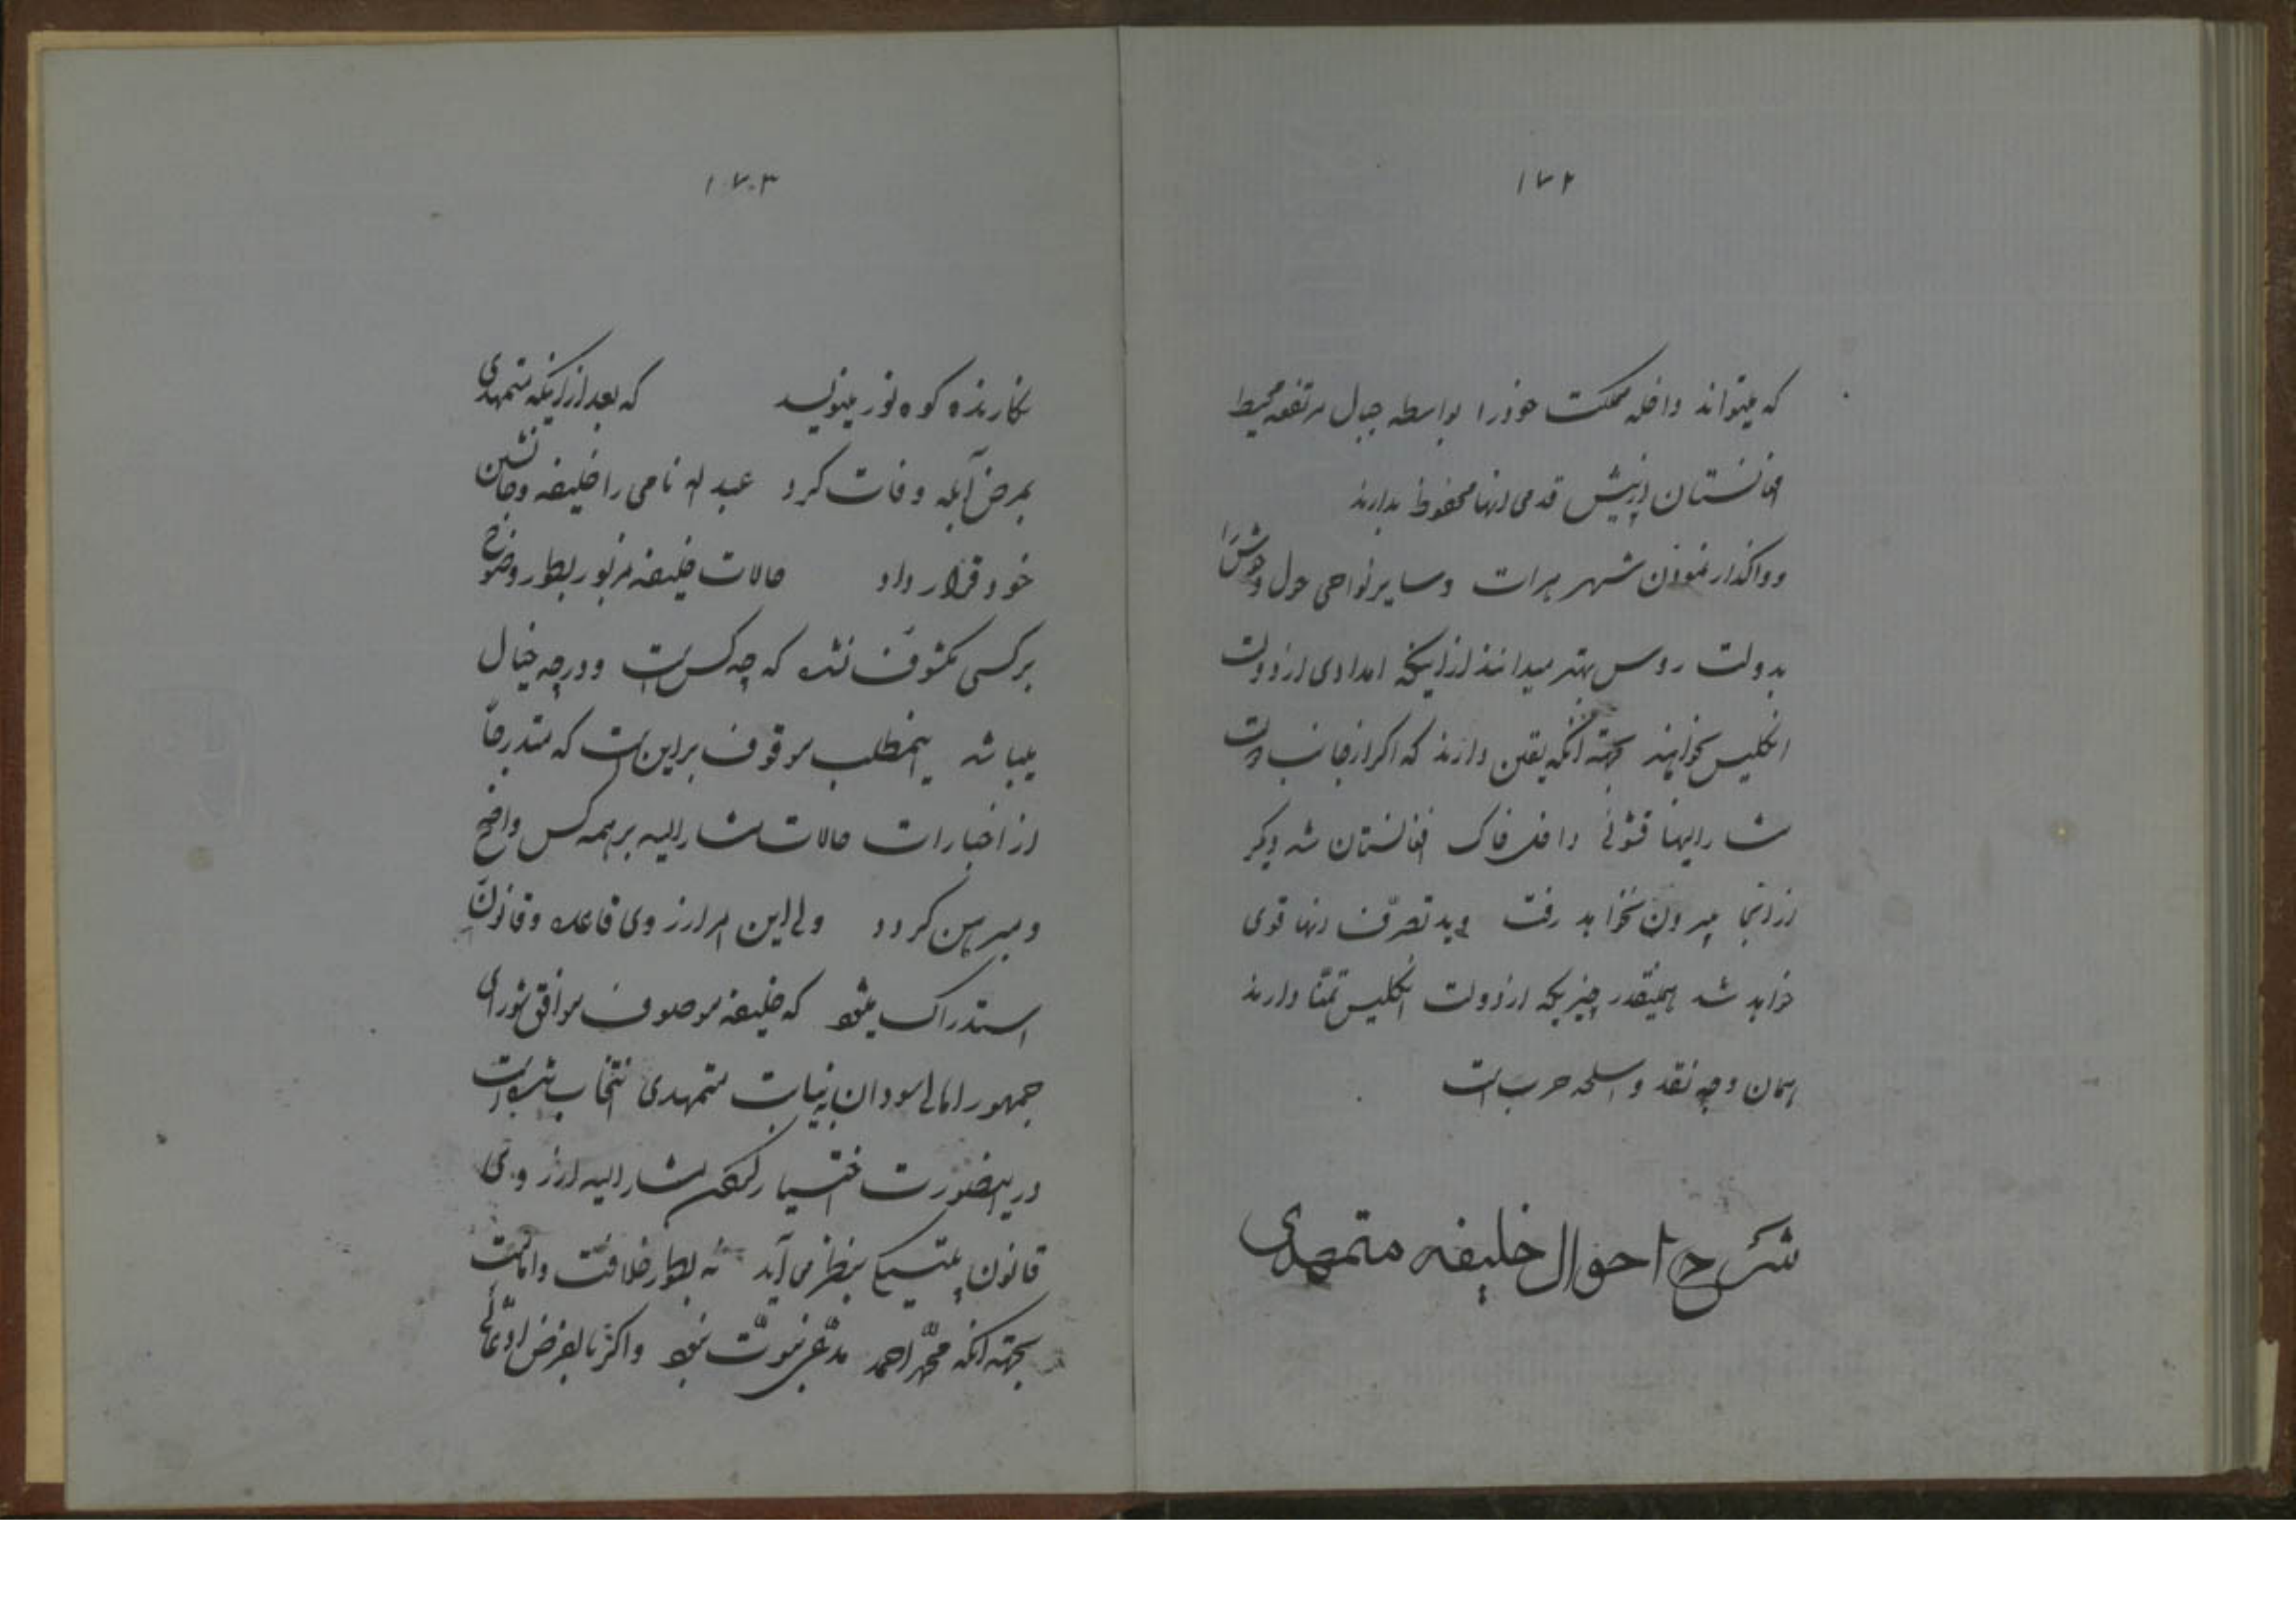 ۱۷۲
که میتواند داخله مملکت خود را بواسطه جبال مرتفعه محیط
افغانستان از پیش قدمی آنها محفوظ بدارند
و واگذار نمودن شهر هرات و سایر نواحی حول و حوش را
بدولت روس بهتر میدانند از اینکه امدادی از دولت
انگلیس بخواهند بجهته آنکه یقین دارند که اگر از جانب دولت
مشارالیها قشونی داخل خاک افغانستان شد دیگر
از آنجا بیرون نخواهد رفت و ید تصرّف آنها قوی
خواهد شد همینقدر چیزیکه از دولت انگلیس تمنّا دارند
همان وجه نقد و اسلحه حرب است
شرح احوال خلیفه متمهدی
۱۷۳
نگارنده کوه نور مینویسد که بعد از اینکه متمهدی
بمرض آبله وفات کرد عبد الله نامی را خلیفه و جانشین
خود قرار داد حالات خلیفه مزبور بطور وضوح
بر کسی مکشوف نشده که چه کس است و در چه خیال
میباشد اینمطلب موقوف بر این است که متدرجاً
از اخبارات حالات مشارالیه بر همه کس واضح
و مبرهن گردد ولی این امر از روی قاعده و قانون
استدراک میشود که خلیفه موصوف موافق شورای
جمهور اهالی سودان به نیابت متمهدی انتخاب شده است
در اینصورت اختیار کردن مشارالیه از روی
قانون پلتیکی بنظر می آید نه بطور خلافت و امامت
بجهته آنکه محمّد احمد مدّعی نبوّت نبود و اگر بالفرض ادّعای